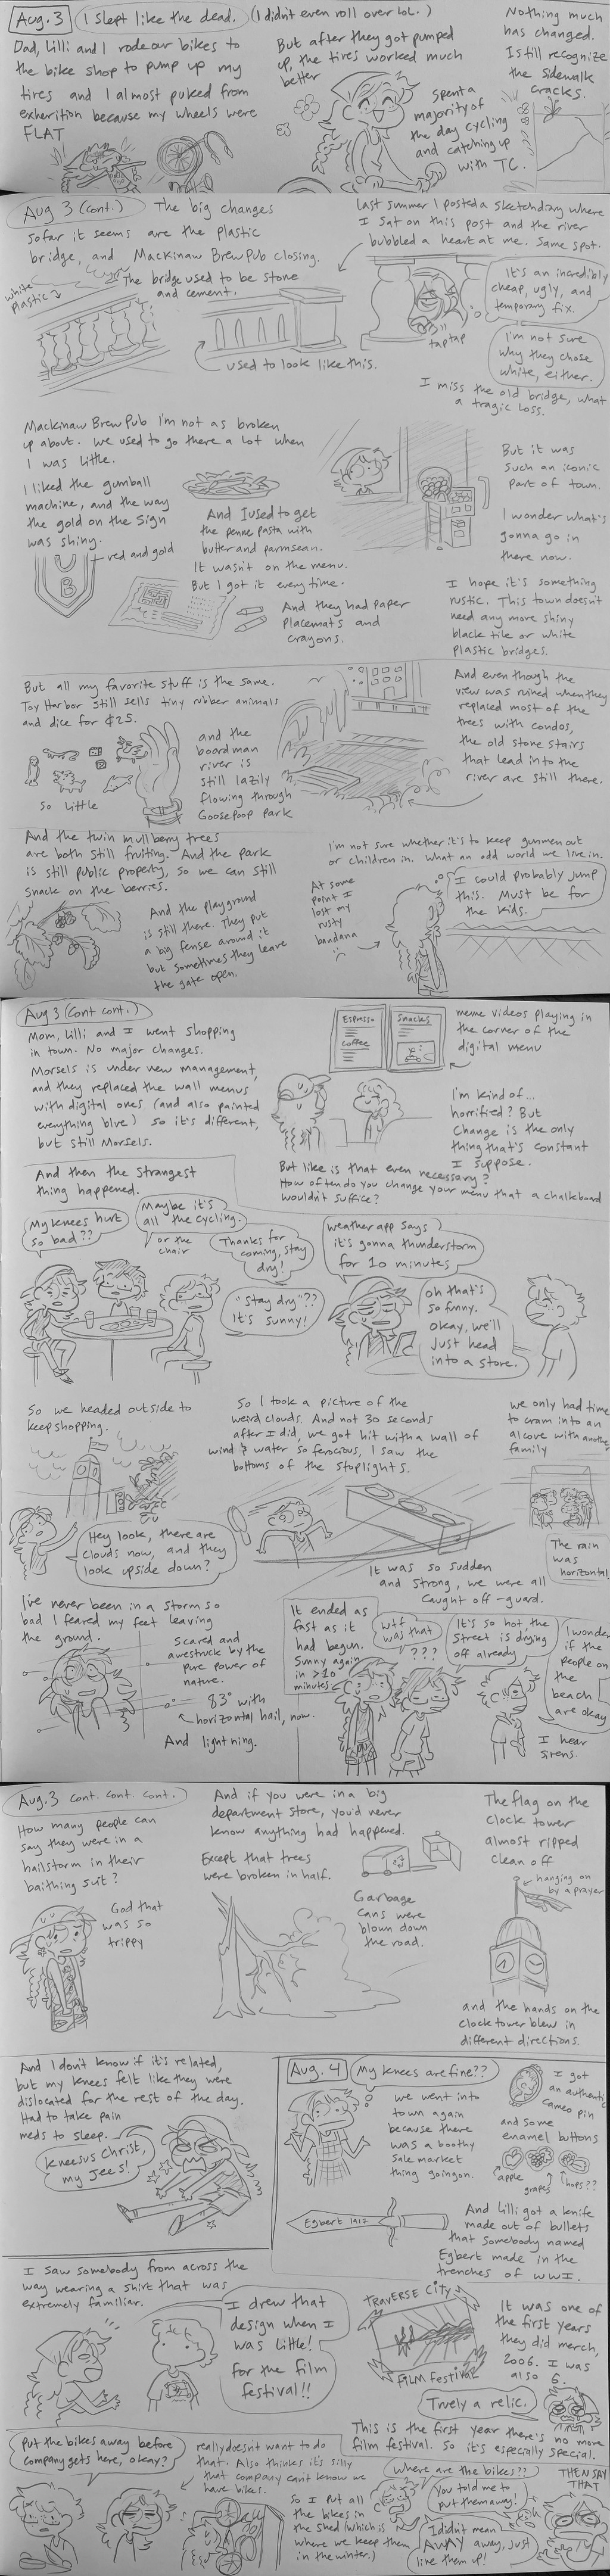 Aug. 3
I slept like the dead.
(I didn't even roll over LOL.)
Dad, Lilli and I rode our bikes to
the bike shop to pump up my
tires and I almost puked from
exherition because my wheels were
FLAT
But after they got pumped
up, the tires worked much
better
spent a
majority of
the day cycling
and catching up
with TC.
Nothing much
has changed.
I still recognize
the sidewalk
cracks.
Aug 3 (cont.)
The big changes
so far it seems are the plastic
bridge, and Mackinaw Brew Pub closing.
white
plastic
The bridge used to be stone
and cement.
used to look like this.
Last summer I posted a sketchdiary where
I sat on this post and the river
bubbled a heart at me. Same spot.
tap tap
It's an incredibly
cheap, ugly, and
temporary fix.
I'm not sure
why they chose
white, either.
I miss the old bridge, what
a tragic loss.
Mackinaw Brew Pub I'm not as broken
up about. We used to go there a lot when
I was little.
I liked the gumball
machine, and the way
the gold on the sign
was shiny.
red and gold
B
And I used to get
the penne pasta with
butter and parmsean.
It wasn't on the menu.
But I got it every time.
And they had paper
placemats and
crayons.
But it was
such an iconic
part of town.
I wonder what's
gonna go in
there now.
I hope it's something
rustic. This town doesn't
need any more shiny
black tile or white
plastic bridges.
But all my favorite stuff is the same.
Toy Harbor still sells tiny rubber animals
and dice for ¢25.
so little
and the
boardman
river is
still lazily
flowing through
Goosepoop Park
And even though the
view was ruined when they
replaced most of the
trees with condos,
the old stone stairs
that lead into the
river are still there.
And the twin mullberry trees
are both still fruiting. And the park
is still public property, so we can still
snack on the berries.
And the playground
is still there. They put
a big fense around it
but sometimes they leave
the gate open.
I'm not sure whether it's to keep gunmen out
or children in. What an odd world we live in.
At some
point I
lost my
rusty
bandana
:(
I could probably jump
this. Must be for
the kids.
Aug 3 (cont cont.)
Mom, Lilli and I went shopping
in town. No major changes.
Morsels is under new management,
and they replaced the wall menus
with digital ones (and also painted
everything blue) so it's different,
but still Morsels.
Espresso
coffee
Snacks
meme videos playing in
the corner of the
digital menu
I'm kind of...
horrified? But
change is the only
thing that's constant
I suppose.
But like is that even necessary?
How often do you change your menu that a chalkboard
wouldn't suffice?
And then the strangest
thing happened.
My knees hurt
so bad??
Maybe it's
all the cycling.
or the
chair
Thanks for
coming, stay
dry!
"Stay dry"??
It's sunny!
weather app says
it's gonna thunderstorm
for 10 minutes
oh that's
so funny.
okay, we'll
just head
into a store.
So we headed outside to
keep shopping.
Hey look, there are
clouds now, and they
look upside down?
So I took a picture of the
weird clouds. And not 30 seconds
after I did, we got hit with a wall of
wind & water so ferocious, I saw the
bottoms of the stoplights.
It was so sudden
and strong, we were all
caught off-guard.
we only had time
to cram into an
alcove with another
family
The rain
was
horizontal
I've never been in a storm so
bad I feared my feet leaving
the ground.
Scared and
awestruck by the
pure power of
nature.
83° with
horizontal hail, now.
And lightning.
It ended as
fast as it
had begun.
Sunny again
in >10
minutes
wtf
was that
???
It's so hot the
street is drying
off already
I wonder
if the
people on
the
beach
are okay
I hear
sirens.
Aug. 3 cont. cont. cont.
How many people can
say they were in a
hailstorm in their
baithing suit?
God that
was so
trippy
And if you were in a big
department store, you'd never
know anything had happened.
Except that trees
were broken in half.
Garbage
cans were
blown down
the road.
The flag on the
clock tower
almost ripped
clean off
hanging on
by a prayer
and the hands on the
clock tower blew in
different directions.
And I don't know if it's related,
but my knees felt like they were
dislocated for the rest of the day.
Had to take pain
meds to sleep.
Kneesus Christ,
my Jees!
Aug. 4
My knees are fine??
we went into
town again
because there
was a boothy
sale market
thing going on.
I got
an authentic
cameo pin
and some
enamel buttons
apple
grapes
hops??
Egbert 1917
And Lilli got a knife
made out of bullets
that somebody named
Egbert made in the
trenches of WWI.
I saw somebody from across the
way wearing a shirt that was
extremely familiar.
I drew that
design when I
was little!
for the film
festival!!
TRAVERSE CITY
FILM FESTIVAL
It was one of
the first years
they did merch,
2006. I was
also 6.
Truely a relic.
This is the first year there's no more
film festival. So it's especially special.
Put the bikes away before
company gets here, okay?
really doesn't want to do
that. Also thinks it's silly
that company can't know we
have bikes.
So I put all
the bikes in
the shed (which is
where we keep them
in the winter.)
Where are the bikes??
You told me to
put them away!
I didn't mean
AWAY away, just
line them up!
THEN SAY
THAT